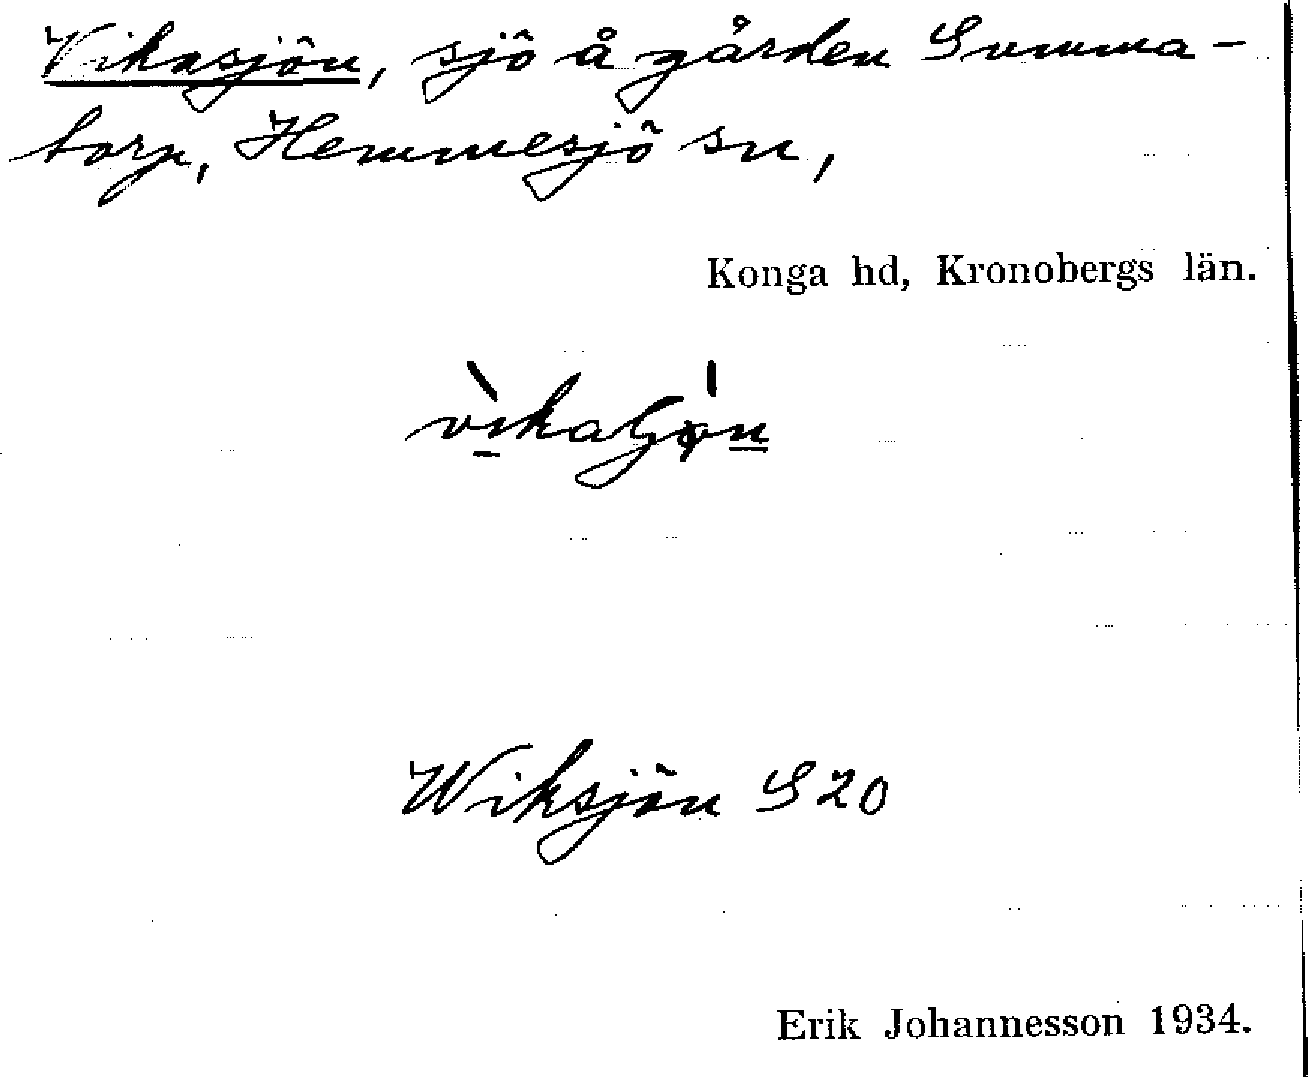 Vikasjön, sjö å gården Summa-
torp, Hemmesjö sn,
Konga hd, Kronobergs län.
Wiksjön S 20
Erik Johannesson 1934.